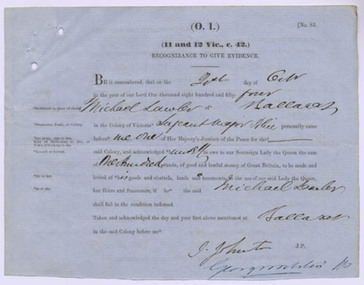 (O. 1.)
[No. 82.
(11 and 12 Vic., c. 42.)
RECOGNIZANCE TO GIVE EVIDENCE.
BE it remembered, that on the day of Octr
in the year of our Lord One thousand eight hundred and fifty four
Michael Lawler of Ballarat
in the Colony of Victoria Sergeant Major Police personally came
before me one of Her Majesty's Justices of the Peace for the
said Colony, and acknowledged to owe to our Sovereign Lady the Queen the sum
of One hundred pounds, of good and lawful money of Great Britain, to be made and
levied of his goods and chattels, lands and tenements, to the use of our said Lady the Queen,
her Heirs and Successors, if he the said Michael Lawler
shall fail in the condition indorsed.
Taken and acknowledged the day and year first above mentioned at Ballarat
in the said Colony before me
J. Johnston J.P.